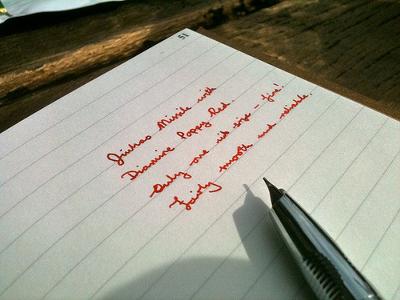 51
Jinhao Missile with
Diamine Poppy Red.
Only one nib size - fine!
Fairly smooth and reliable.